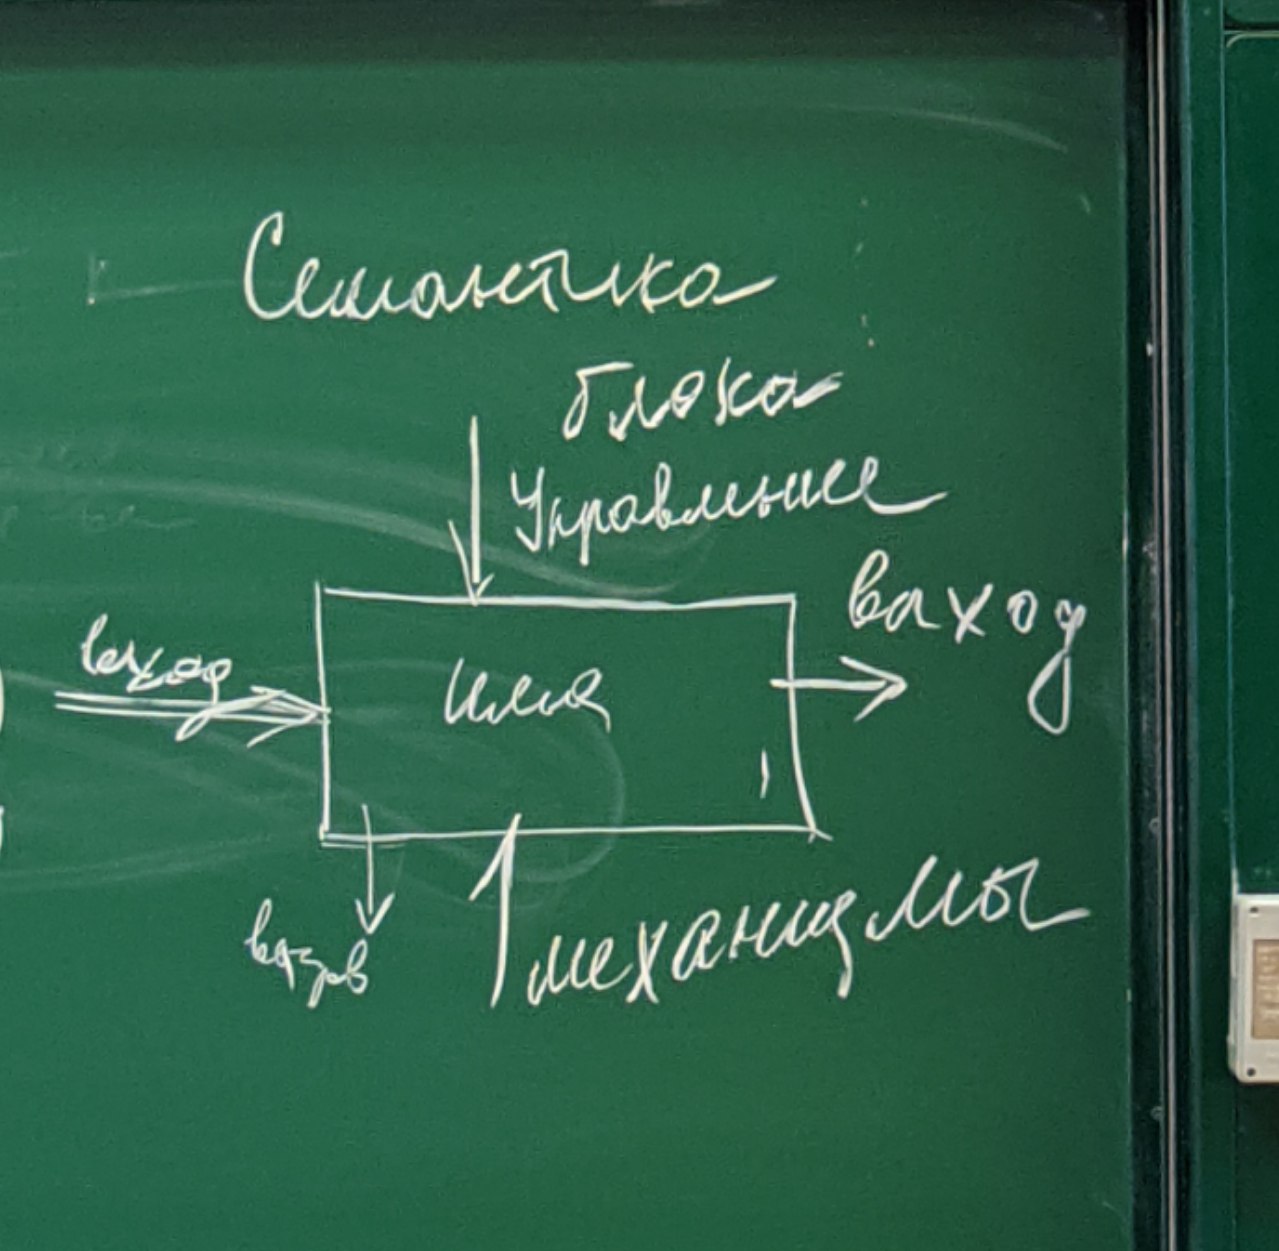 Семантика
блока
Управление
вход
имя
выход
вызов
механизмы